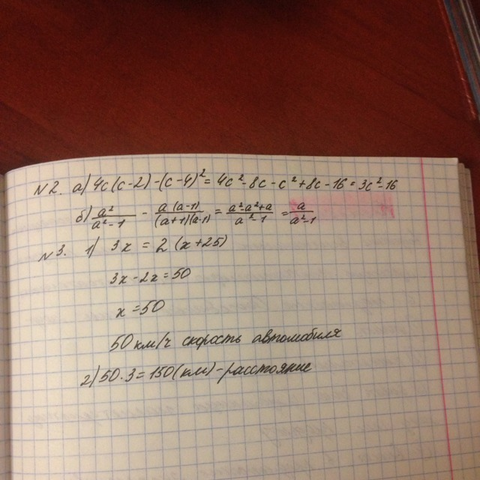 N 2. а) 4c(c-2)-(c-4)² = 4c²-8c-c²+8c-16 = 3c²-16
б) a²/a²-1 - a(a-1)/(a+1)(a-1) = a²-a²+a/a²-1 = a/a²-1
N 3. 1) 3x = 2(x+25)
3x-2x=50
x=50
50 км/ч скорость автомобиля
2) 50·3=150(км)-расстояние